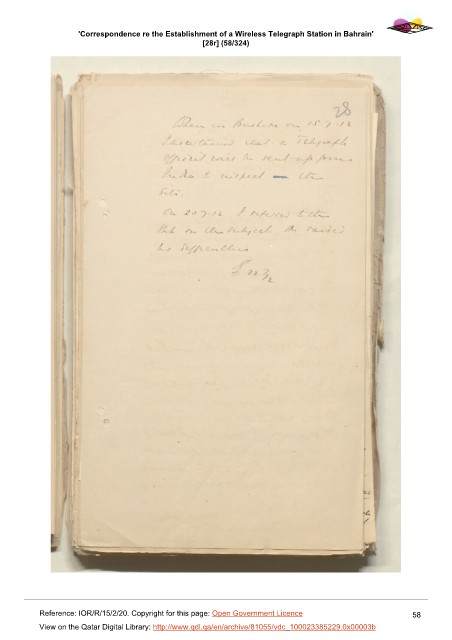 'Correspondence re the Establishment of a Wireless Telegraph Station in Bahrain'
[28r] (58/324)
28
When in Bushire on 15.7.12
I ascertained that a Telegraph
official will be sent up from
India to inspect — the
site.
On 20.7.12 I referred to the
on the subject. He raised
no difficulties
Reference: IOR/R/15/2/20. Copyright for this page: Open Government Licence
58
View on the Qatar Digital Library: http://www.qdl.qa/en/archive/81055/vdc_100023385229.0x00003b